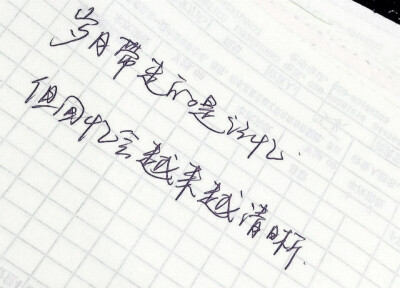 岁月带走的是记忆.
但回忆会越来越清晰.